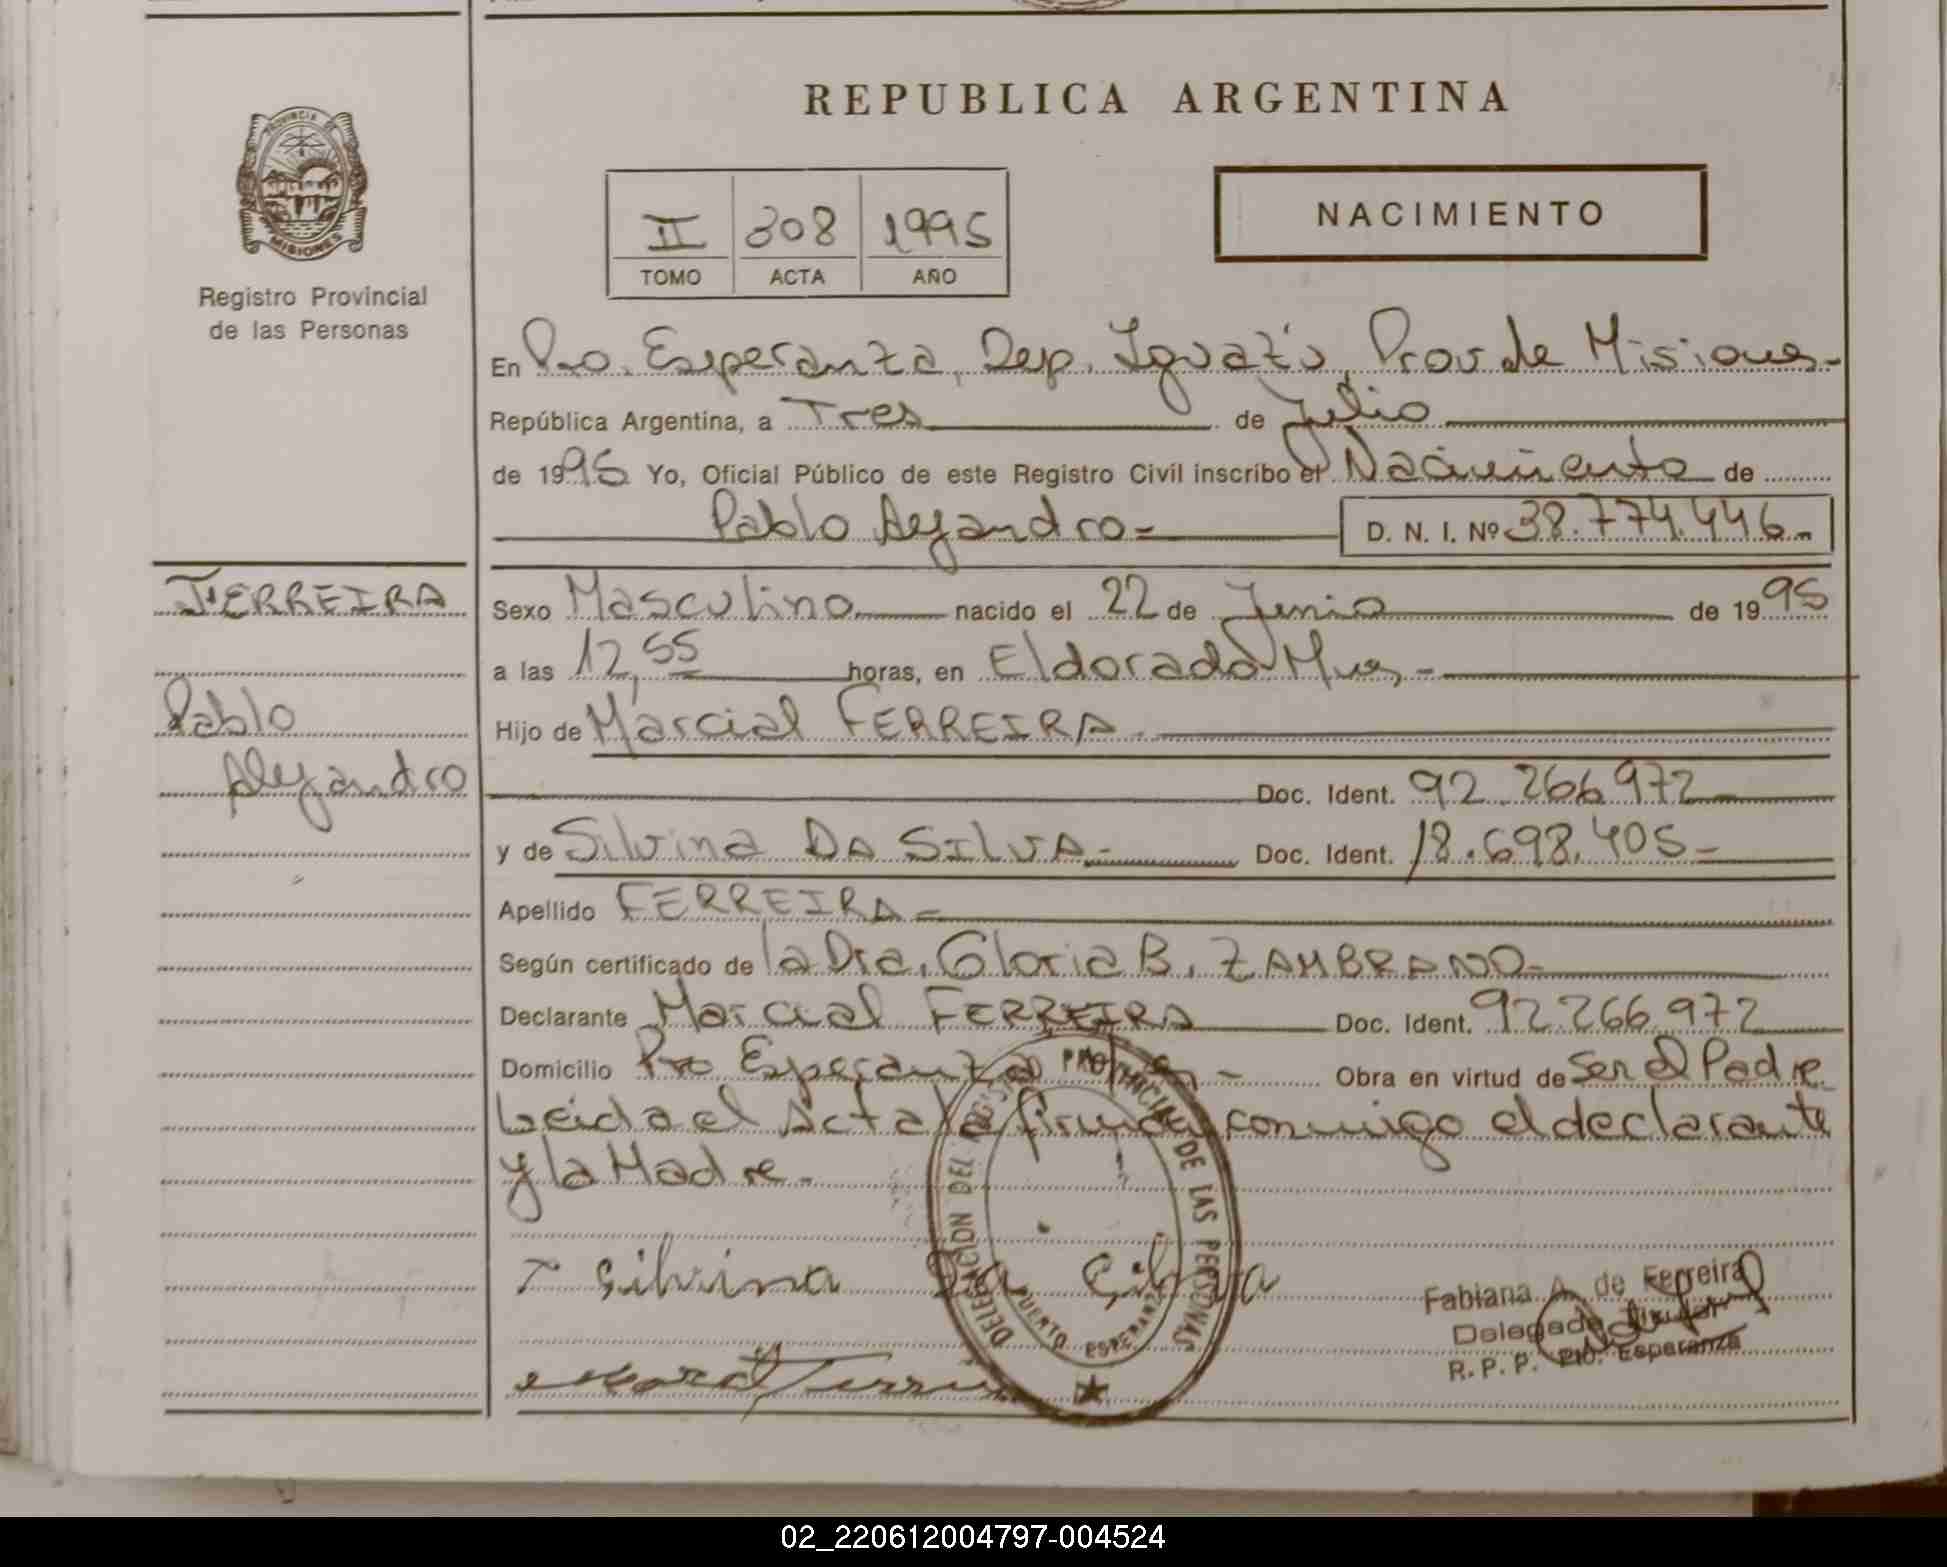 REPUBLICA ARGENTINA
PROVINCIA DE
MISIONES
Registro Provincial
de las Personas
II 308 1995
TOMO ACTA AÑO
NACIMIENTO
En Pto. Esperanza, Dep. Iguazú, Prov de Misiones-
República Argentina, a Tres de Julio
de 1995 Yo, Oficial Público de este Registro Civil inscribo el Nacimiento de
Pablo Alejandro- D. N. I. Nº 38.774.446-
FERREIRA
Pablo
Alejandro
Sexo Masculino nacido el 22 de Junio de 1995
a las 12,55 horas, en Eldorado Mnes,-
Hijo de Marcial FERREIRA
Doc. Ident. 92.266972
y de Silvina DA SILVA- Doc. Ident. 18.698.405-
Apellido FERREIRA-
Según certificado de la Dra. Gloria B. ZAMBRANO-
Declarante Marcial FERREIRA Doc. Ident. 92266972
Domicilio Pto Esperanza - Obra en virtud de Ser el Padre
Leida el Acta la firman conmigo el declarante
y la Madre.-
DELEGACION DEL REGISTRO PROVINCIAL DE LAS PERSONAS
PUERTO ESPERANZA
Silvina Da Silva
Fabiana A. de Ferreira
Delegada Titular
R. P. P. Pto. Esperanza
02_220612004797-004524